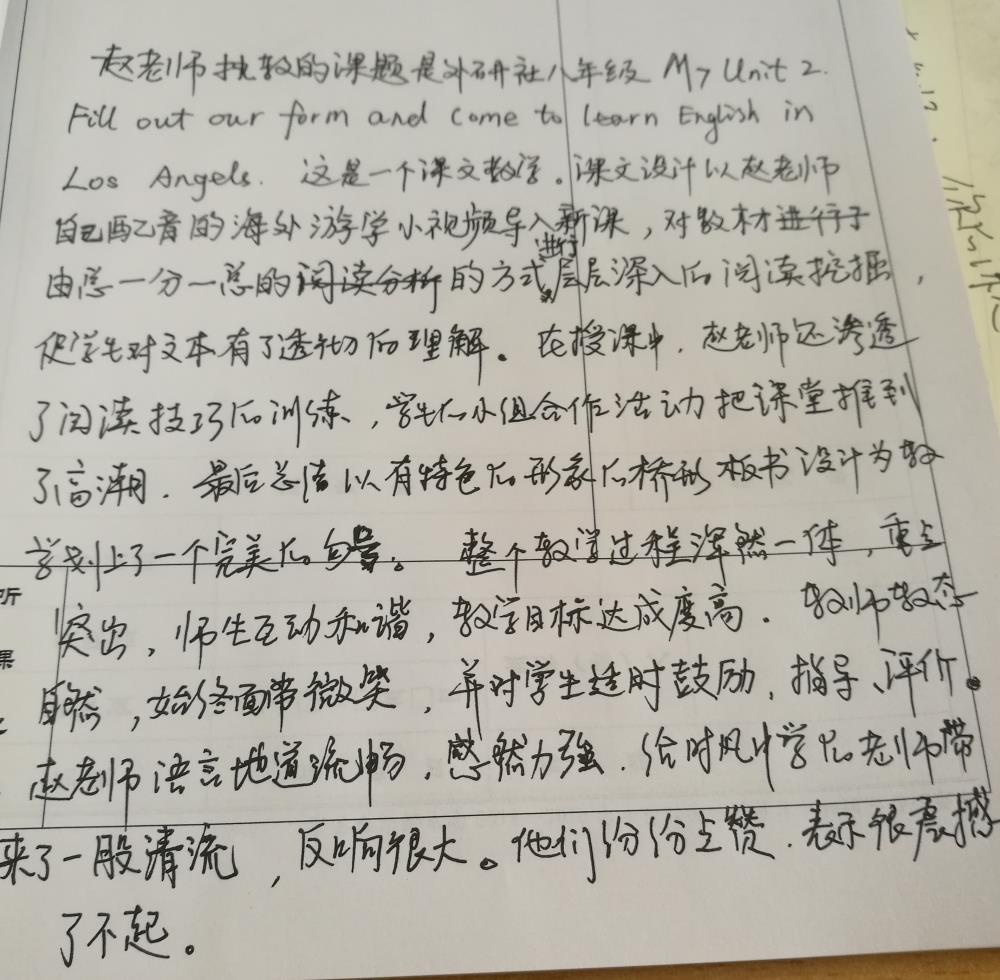 赵老师执教的课题是外研社八年级 M7 Unit 2.
Fill out our form and come to learn English in
Los Angels. 这是一个课文教学。课文设计以赵老师
自己配音的海外游学小视频导入新课，对教材进行了
由总一分一总的阅读分析的方式进行层层深入的阅读挖掘，
使学生对文本有了透切的理解。在授课中，赵老师还渗透
了阅读技巧的训练，学生的小组合作活动把课堂推到
了高潮．最后总结以有特色的形象的桥形板书设计为教
学划上了一个完美的句号。整个教学过程浑然一体，重点
突出，师生互动和谐，教学目标达成度高．教师教态
自然，始终面带微笑，并对学生适时鼓励、指导、评价。
赵老师语言地道流畅，感然力强．给时风中学的老师带
来了一股清流，反响很大。他们份份点赞．表示很震撼
了不起。
听
课